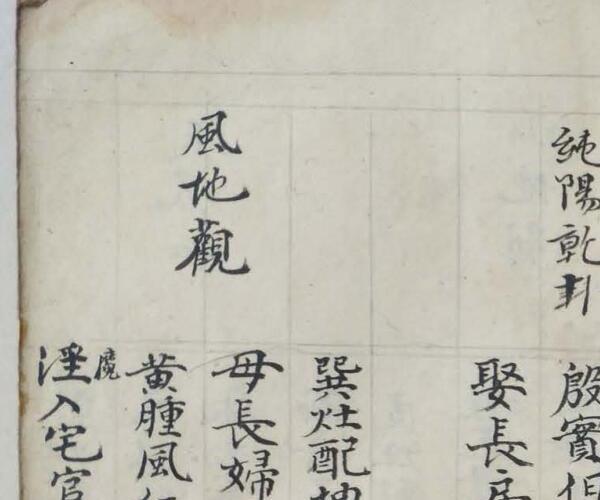 純陽乾卦
殷實
娶長
風地觀
巽灶配坤
母長婦
黄腫風
魔
淫入宅官